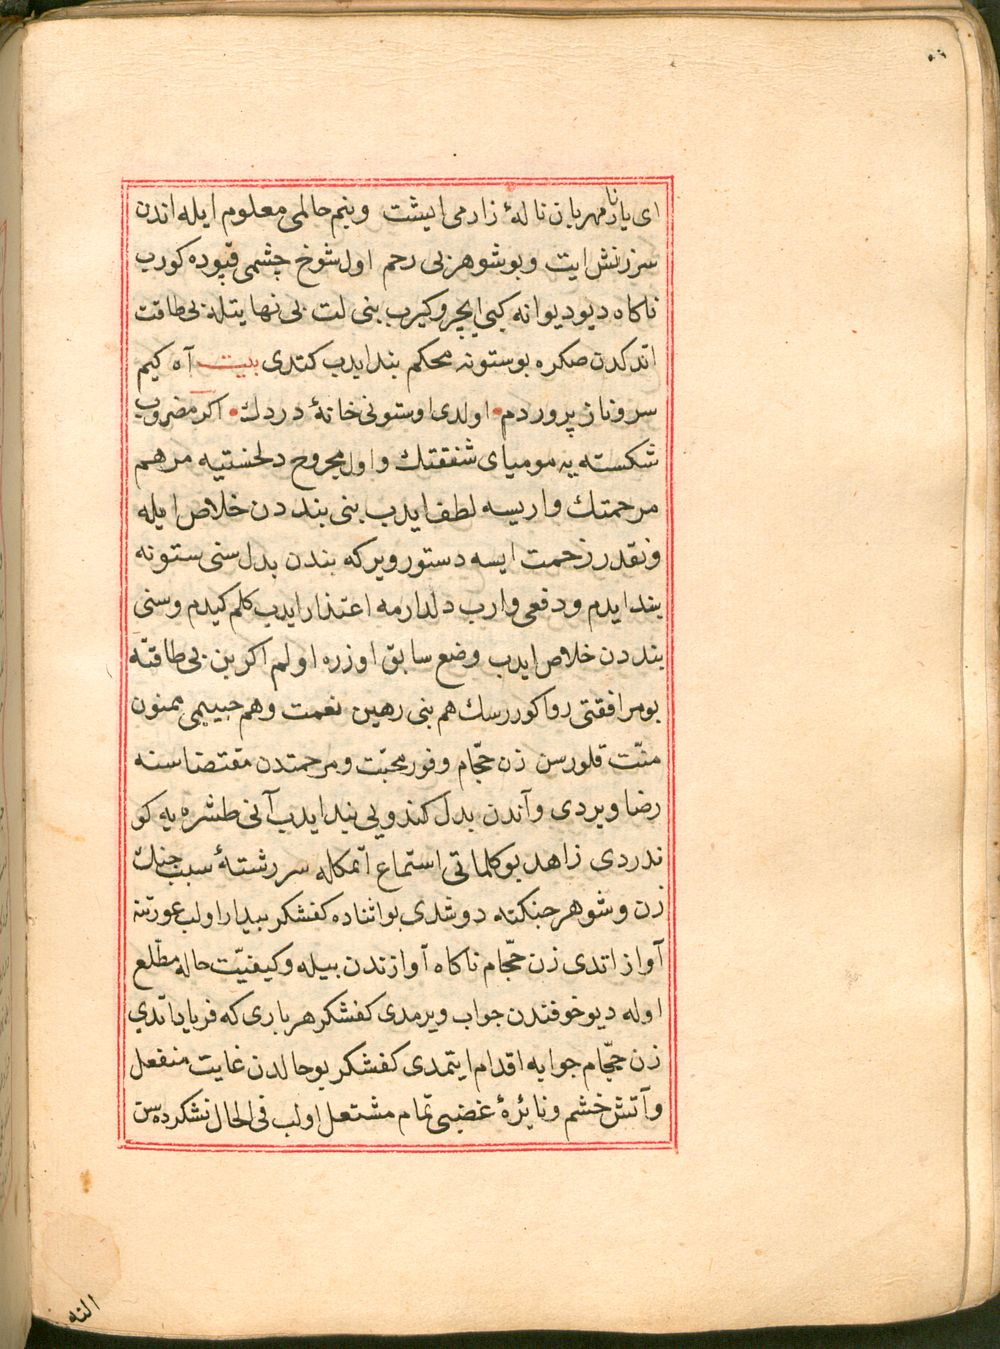 ای یار نامهربان نالهٔ زارمی ایشت وبنم حالمی معلوم ایله اندن
سرزنش ایت وبو شوهر بی رحم اول شوخ چشمی قپوده کورب
ناکاه دیو دیوانه کبی ایچرو کیرب بنی لت بی نهایتله بی طاقت
اتدکدن صکره بو ستونه محکم بند ایدب کتدی بیت آه کیم
سرو ناز پروردم • اولدی اوستونی خانهٔ دردك • اکر مضروب
شکسته یه مومیای شفقتك واول مجروح دلخستیه مرهم
مرحمتك واریسه لطف ایدب بنی بنددن خلاص ایله
ونقدر زحمت ایسه دستور ویر که بندن بدل سنی ستونه
بند ایدم ودفعی وارب دلدارمه اعتذار ایدب کلم کیدم وسنی
بنددن خلاص ایدب وضع سابق اوزره اولم اکر بن بی طاقته
بو مرافقتی روا کوررسك هم بنی رهین نعمت وهم حبیبمی ممنون
منّت قلورسن زن حجّام وفور محبّت ومرحمتدن مقتضاسنه
رضا ویردی وآندن بدل کندویی بند ایدب آنی طشره یه کو
ندردی زاهد بو کلماتی استماع اتمکله سررشتهٔ سبب جنك
زن وشوهر چنکنه دوشدی بو اثناده کفشکر بیدار اولب عورتنه
آواز اتدی زن حجّام ناکاه آوازندن بیله وکیفیّت حاله مطّلع
اوله دیو خوفندن جواب ویرمدی کفشکر هر باری که فریاد اتدی
زن حجّام جوابه اقدام ایتمدی کفشکر بو حالدن غایت منفعل
وآتش خشم ونائرهٔ غضبی تمام مشتعل اولب فی الحال نشکرده سن
النه